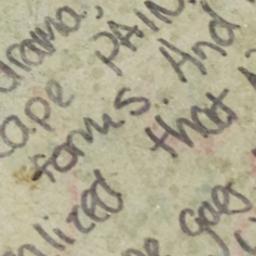 drama,
cape PAIN.
forms. And
lized that
goes